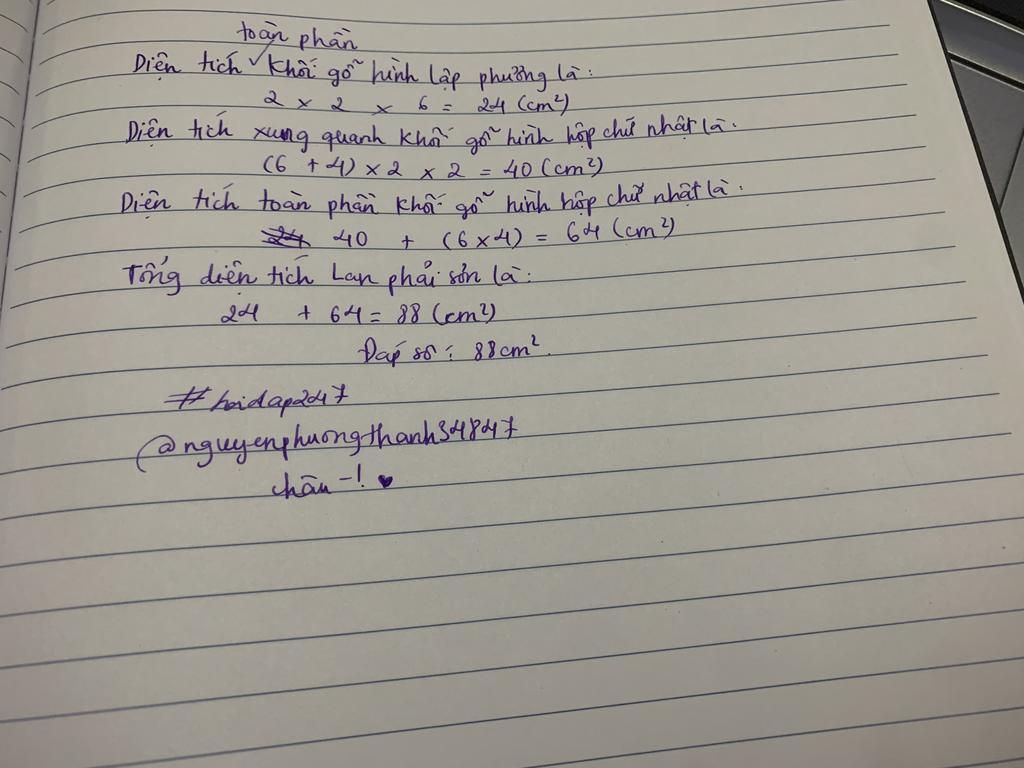 toàn phần
Diện tích ✓ khối gỗ hình lập phương là:
2 x 2 x 6 = 24 (cm²)
Diện tích xung quanh khối gỗ hình hộp chữ nhật là:
(6 + 4) x 2 x 2 = 40 (cm²)
Diện tích toàn phần khối gỗ hình hộp chữ nhật là:
24 40 + (6 x 4) = 64 (cm²)
Tổng diện tích Lan phải sơn là:
24 + 64 = 88 (cm²)
Đáp số: 88cm².
#hoidap247
@nguyenphuongthanh34847